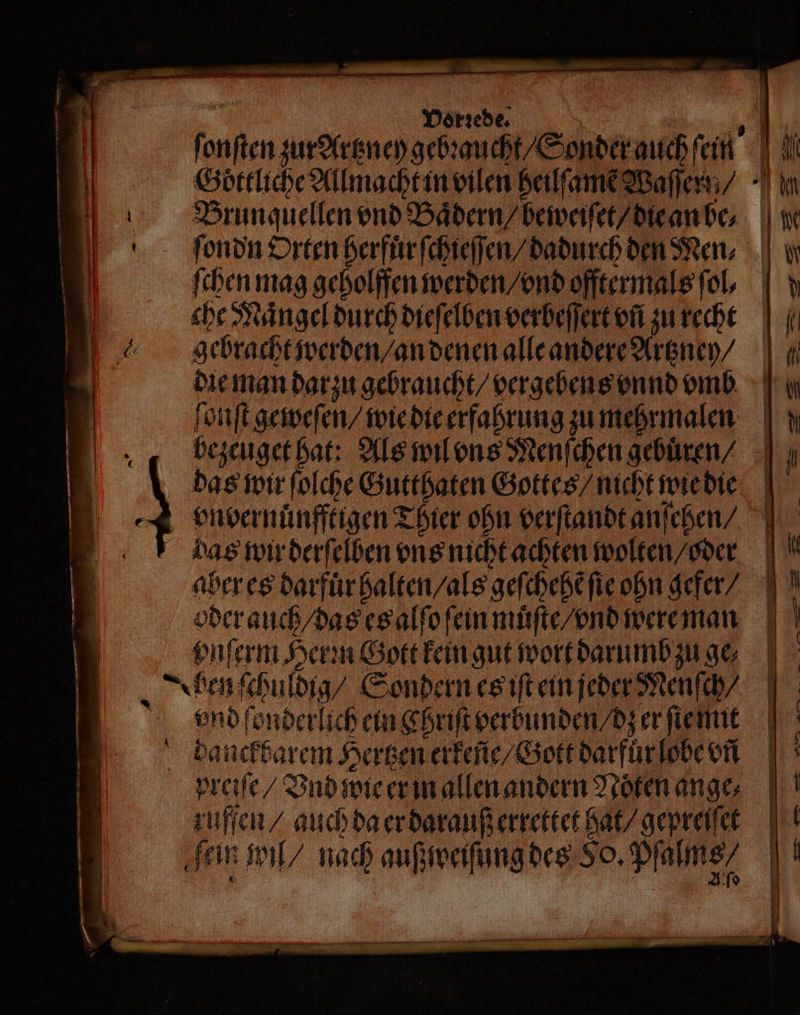 Vorꝛede.
ſonſten zur Artzney gebꝛaucht/Sonder auch ſein
Göttliche Allmacht in vilen heilſamẽ Waſſern/
Brunquellen vnd Bådern/beweiſet/die an be⸗
ſondn Orten herfůr ſchieſſen/dadurch den Men⸗
ſchen mag geholffen werden/vnd offtermals ſol⸗
che Mångel durch dieſelben verbeſſert vñ zu recht
gebracht werden/an denen alle andere Artzney/
die man darzu gebraucht/vergebens vnnd vmb
ſonſt geweſen/wie die erfahrung zu mehrmalen
bezeuget hat: Als wil vns Menſchen gebůren/
das wir ſolche Gutthaten Gottes/nicht wie die
vnvernůnfftigen Thier ohn verſtandt anſehen/
das wir derſelben vns nicht achten wolten/oder
aber es darfůr halten/als geſchehẽ ſie ohn gefer/
oder auch/das es alſo ſein můſte/vnd were man
vnſerm Herꝛn Gott kein gut wort darumb zu ge⸗
ben ſchuldig/ Sondern es iſt ein jeder Menſch/
vnd ſonderlich ein Chriſt verbunden/dz er ſie mit
danckbarem Hertzen erkeñe/Gott darfůr lobe vñ
preiſe/ Vnd wie er in allen andern Nöten ange⸗
ruffen/ auch da er darauß errettet hat/gepreiſet
ſein wil/ nach außweiſung des 50. Pſalms/
Alſo